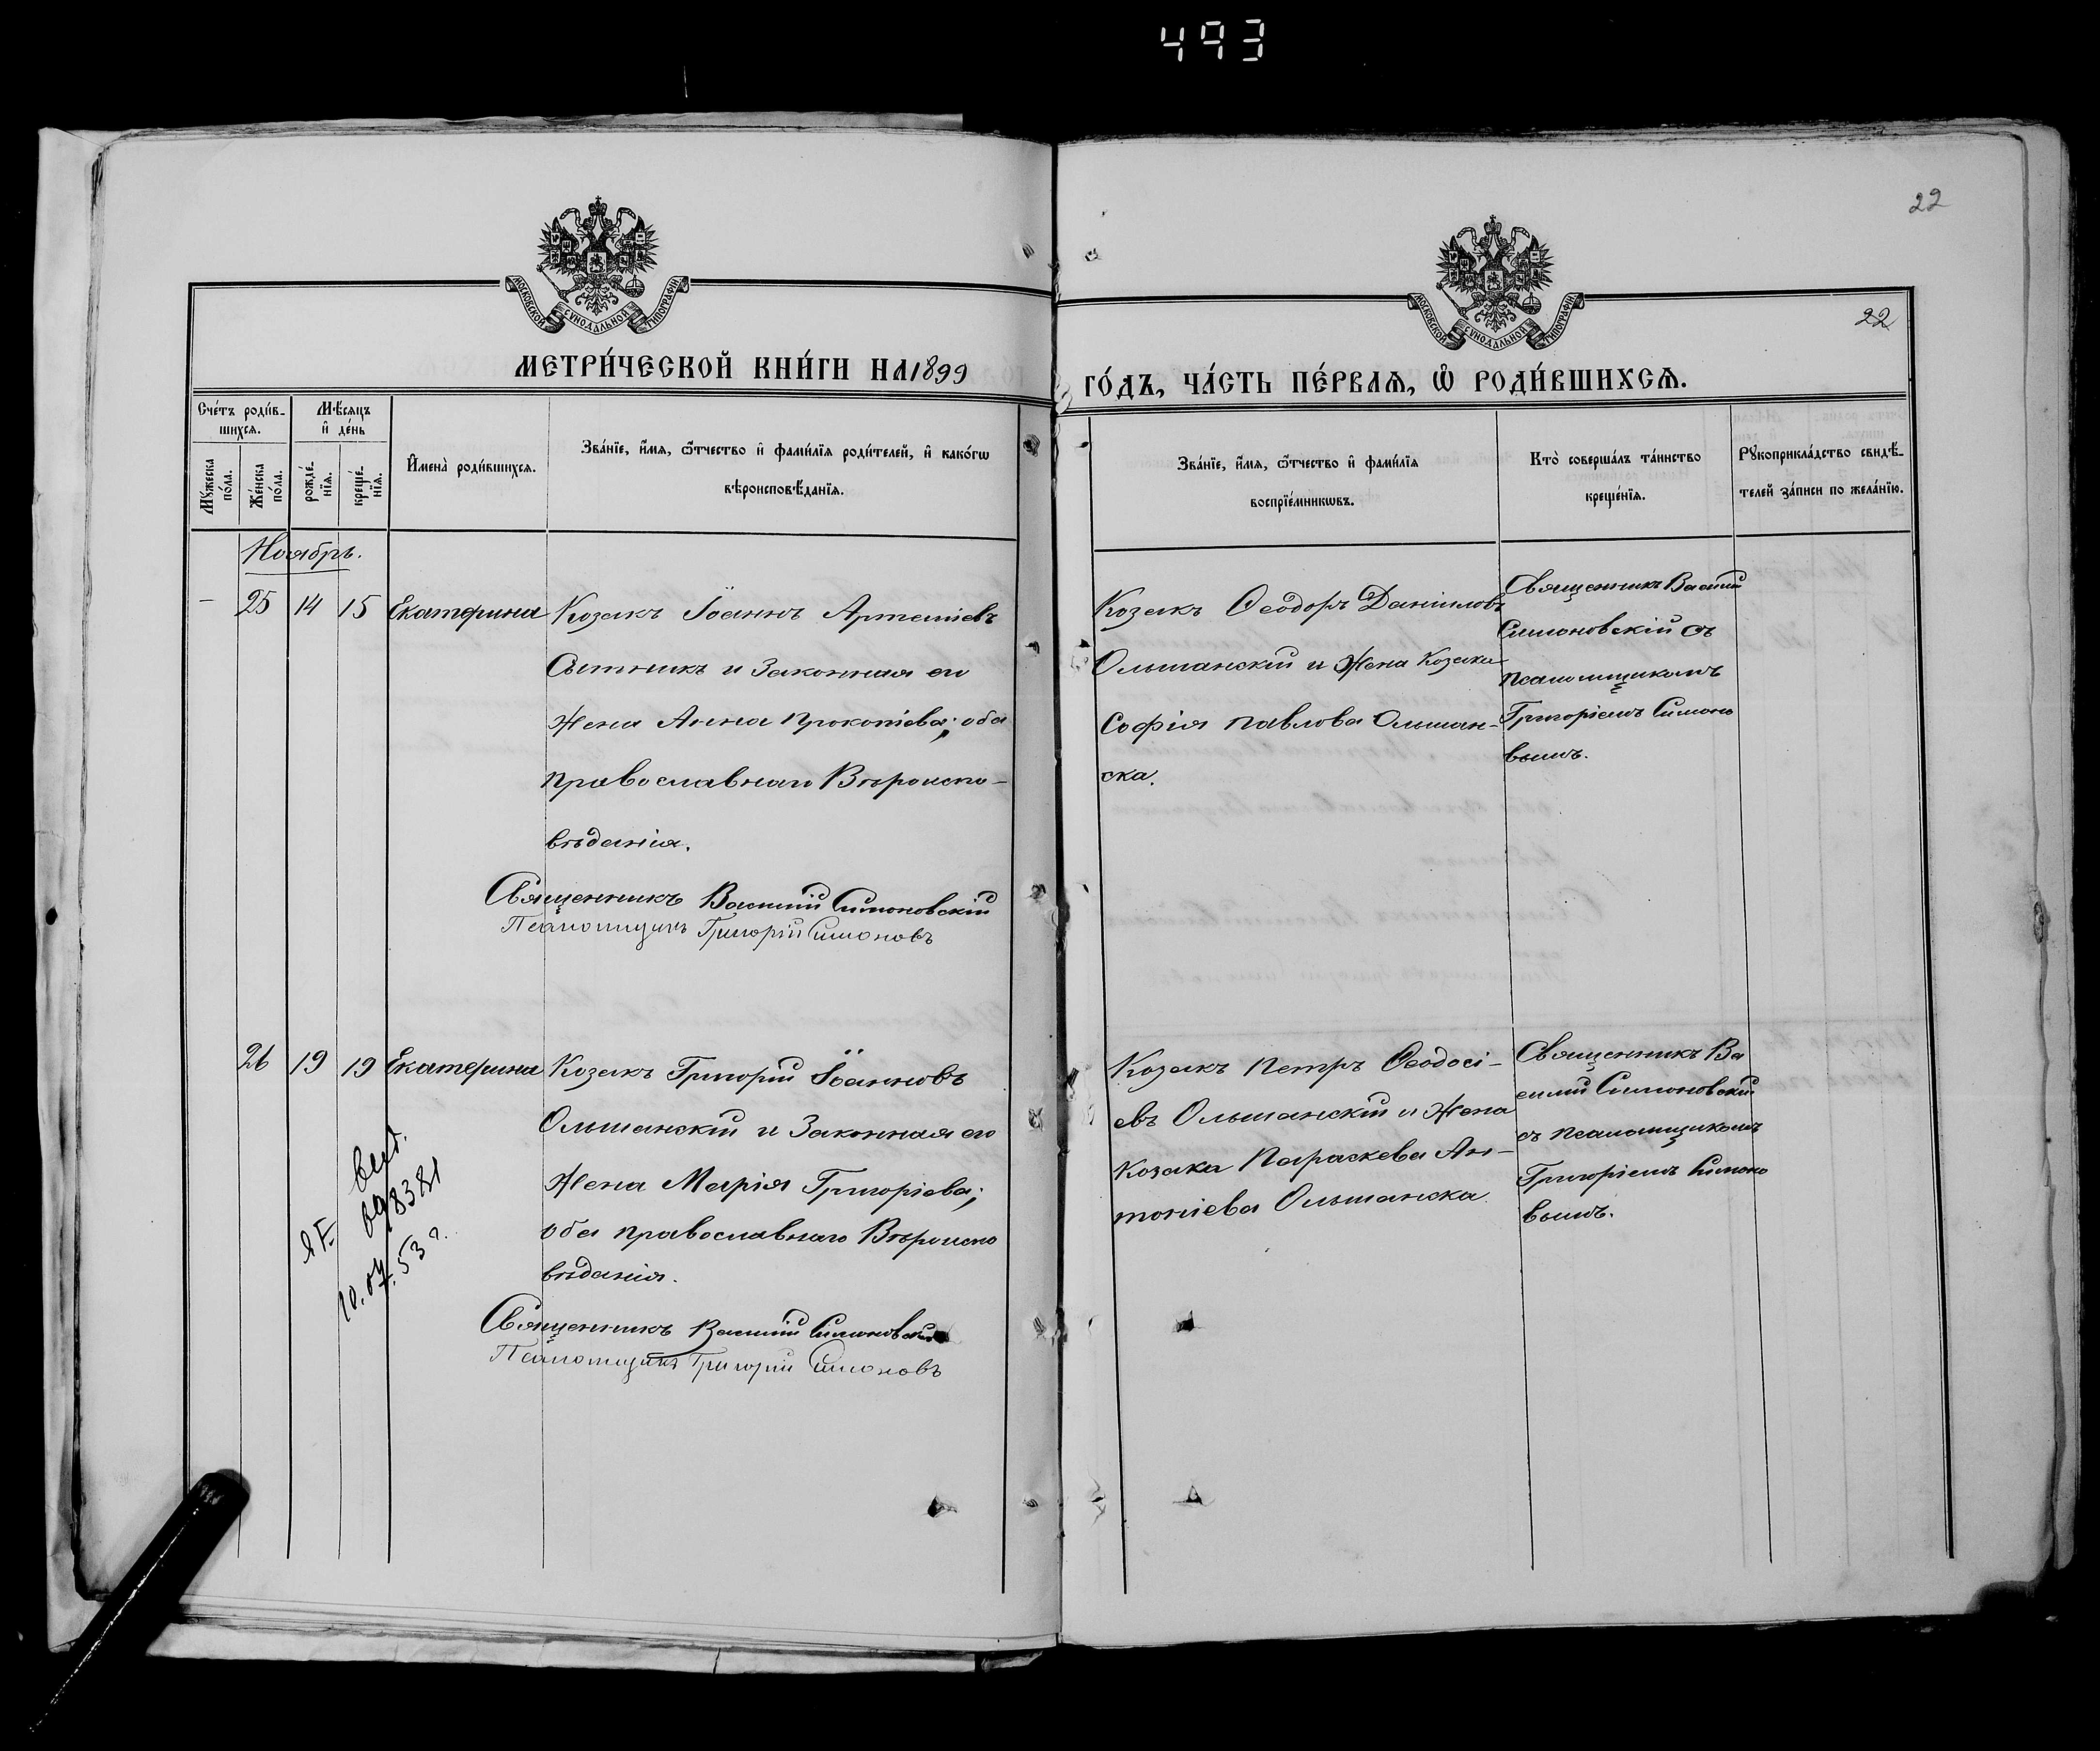 493
22
МОСКОВСКОЙ СУНОДАЛЬНОЙ ТИПОГРАФІИ
МОСКОВСКОЙ СУНОДАЛЬНОЙ ТИПОГРАФІИ
22
МЕТРИ́ЧЕСКОЙ КНИ́ГИ НА 1899
ГО́ДЪ, ЧА́СТЬ ПЕ́РВАѦ, Ѡ҆ РОДИ́ВШИХСѦ.
Сче́тъ роди́в-
шихсѧ.
Мѣ́сѧцъ
и҆ де́нь
Мꙋ́жеска
по́ла.
Же́нска
по́ла.
рожде́-
нїѧ.
креще́-
нїѧ.
И҆мена̀ роди́вшихсѧ.
Зва́нїе, и҆́мѧ, ѻ҆́тчество и҆ фами́лїѧ роди́телей, и҆ како́гѡ
вѣроисповѣ́данїѧ.
Зва́нїе, и҆́мѧ, ѻ҆́тчество и҆ фами́лїѧ
воспрїе́мникѡвъ.
Кто̀ соверша́лъ та́инство
креще́нїѧ.
Рꙋкоприкла́дство свидѣ́-
телей за́писи по жела́нїю.
Ноябрь.
– 25 14 15 Екатерина Козакъ Іоаннъ Артеміевъ
Сытникъ и Законная его
Жена Анна Прокопіева; оба
православнаго Вѣроиспо-
вѣданія.
Священникъ Василій Симоновскій
Псаломщикъ Григорій Симоновъ
Козакъ Ѳеодоръ Даніиловъ
Ольшанскій и Жена Козака
Софія Павлова Ольшан-
ска.
Священникъ Василій
Симоновскій съ
псаломщикомъ
Григоріемъ Симоно
вымъ.
26 19 19 Екатерина Козакъ Григорій Іоанновъ
Ольшанскій и Законная его
Жена Марія Григоріева;
оба православнаго Вѣроиспо
вѣданія.
Священникъ Василій Симоновскій
Псаломщикъ Григорій Симоновъ
10.04.53 г.
Козакъ Петръ Ѳеодосі-
евъ Ольшанскій и Жена
Козака Параскева Ан-
тоніева Ольшанска
Священникъ Ва
силій Симоновскій
съ псаломщикомъ
Григоріемъ Симоно
вымъ.